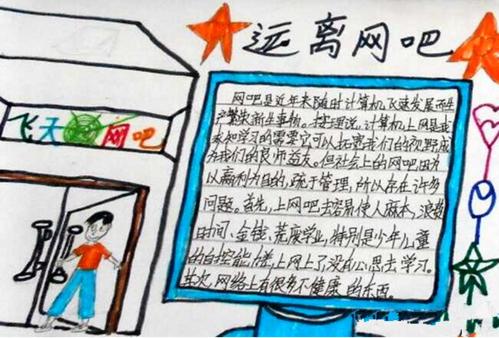 远离网吧
飞天网吧
网吧是近年来随时计算机飞速发展而生
产繁来新生事物。按理说,计算机上网是我
求知学习的需要它可以拓宽我们的视野成
为我们的良师益友。但社会上的网吧因为
以赢利为目的,疏于管理,所以存在许多
问题。首先,上网吧容易使人麻木,浪费
时间、金钱、荒废学业,特别是少年儿童
的自控能力差,上网上了没有心思去学习。
其次,网络上有很多不健康的东西。